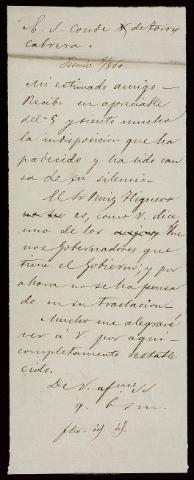 E. S. Conde de Torres
Cabrera.
Junio 8/80.
Mi estimado amigo -
Recibí su apreciable
del 5 y siento mucho
la indisposicion que ha
padecido y ha sido cau
sa de su silencio.
El Sr Ruiz Higuero
es, como V. dice
uno de los
Gobernadores que
tiene el Gobierno, y por
ahora no se ha pensa
do en su traslacion -
Mucho me alegraré
ver á V. por aqui
completamente restable
cido.
De V. afmo
q. b. s. m.